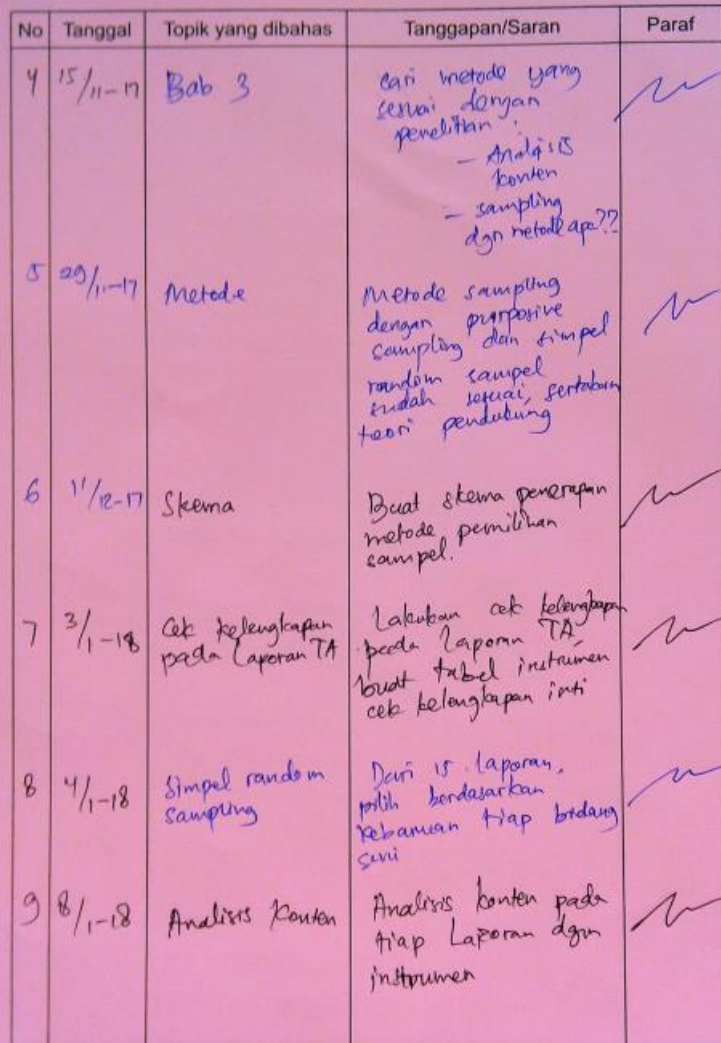 No Tanggal Topik yang dibahas Tanggapan/Saran Paraf
4 15/11-17 Bab 3 Cari metode yang
sesuai dengan
penelitian :
- Analisis
konten
- sampling
dgn metode apa??
5 29/11-17 Metode Metode sampling
dengan purposive
sampling dan simpel
random sampel
sudah sesuai, sertakan
teori pendukung
6 11/12-17 Skema Buat skema penerapan
metode pemilihan
sampel.
7 3/1-18 Cek kelengkapan Lakukan cek kelengkapan
pada Laporan TA pada Laporan TA,
buat tabel instrumen
cek kelengkapan inti
8 4/1-18 Simpel random Dari 15 laporan,
sampling pilih berdasarkan
kebaruan tiap bidang
seni
9 8/1-18 Analisis Konten Analisis konten pada
tiap Laporan dgn
instrumen